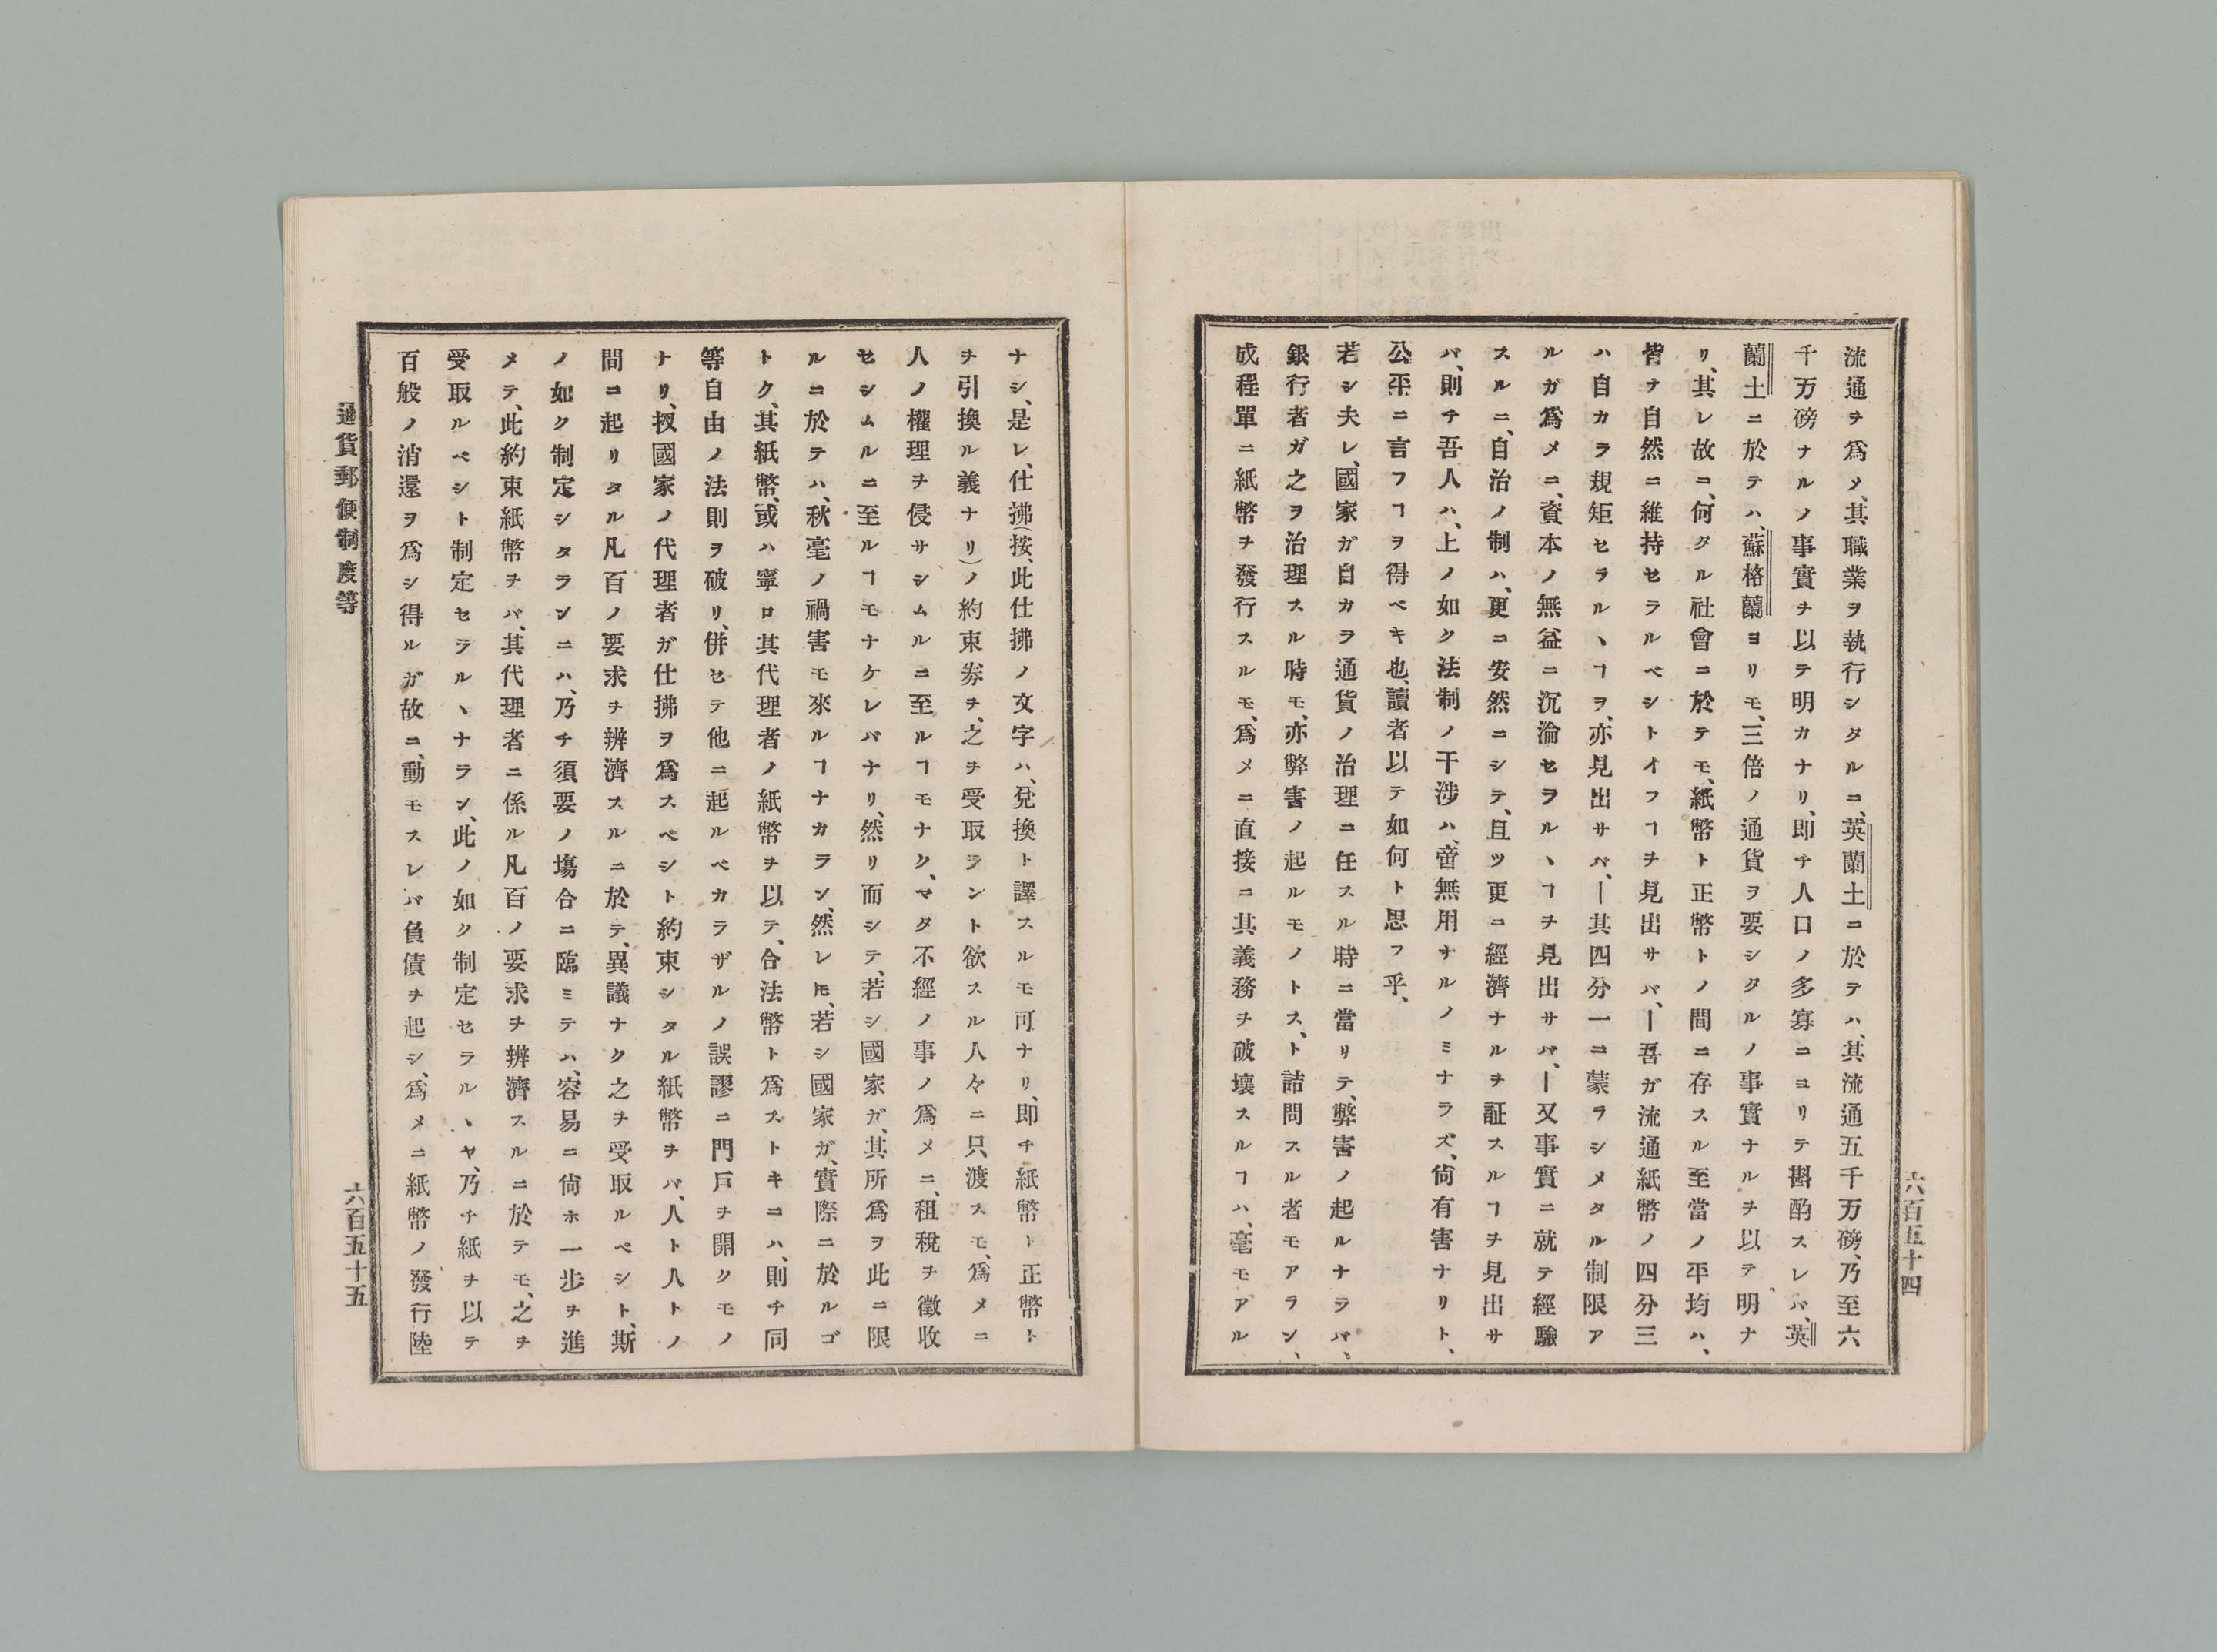 流通ヲ爲メ、其職業ヲ執行シタルニ、英蘭土ニ於テハ、其流通五千万磅、乃至六
千万磅ナルノ事實ヲ以テ明カナリ、即チ人口ノ多寡ニヨリテ斟酌スレバ、英
蘭土ニ於テハ、蘇格蘭ヨリモ、三倍ノ通貨ヲ要シタルノ事實ナルヲ以テ明ナ
リ、其レ故ニ、何タル社會ニ於テモ、紙幣ト正幣トノ間ニ存スル至當ノ平均ハ、
皆ナ自然ニ維持セラルベシトイフヿヲ見出サバ、―吾ガ流通紙幣ノ四分三
ハ自カラ規矩セラルヽヿヲ、亦見出サバ、―其四分一ニ蒙ラシメタル制限ア
ルガ爲メニ、資本ノ無益ニ沉淪セラルヽヿヲ見出サバ、―又事實ニ就テ經驗
スルニ、自治ノ制ハ、更ニ安然ニシテ、且ツ更ニ經濟ナルヲ証スルヿヲ見出サ
バ、則チ吾人ハ、上ノ如ク法制ノ干渉ハ、啻無用ナルノミナラズ、尙有害ナリト、
公平ニ言フヿヲ得ベキ也、讀者以テ如何ト思フ乎、
若シ夫レ、國家ガ自カラ通貨ノ治理ニ任スル時ニ當リテ、弊害ノ起ルナラバ、
銀行者ガ之ヲ治理スル時モ、亦弊害ノ起ルモノトス、ト詰問スル者モアラン、
成程單ニ紙幣ヲ發行スルモ、爲メニ直接ニ其義務ヲ破壞スルヿハ、毫モアル
六百五十四
ナシ、是レ、仕拂(按、此仕拂ノ文字ハ、兌換ト譯スルモ可ナリ、即チ紙幣ト正幣ト
ヲ引換ル義ナリ)ノ約束劵ヲ、之ヲ受取ラント欲スル人々ニ只渡スモ、爲メニ
人ノ權理ヲ侵サシムルニ至ルヿモナク、マタ不經ノ事ノ爲メニ、租稅ヲ徵收
セシムルニ至ルヿモナケレバナリ、然リ而シテ、若シ國家ガ、其所爲ヲ此ニ限
ルニ於テハ、秋毫ノ禍害モ來ルヿナカラン、然レ𪜈、若シ國家ガ、實際ニ於ルゴ
トク、其紙幣、或ハ寧ロ其代理者ノ紙幣ヲ以テ、合法幣ト爲ストキニハ、則チ同
等自由ノ法則ヲ破リ、併セテ他ニ起ルベカラザルノ誤謬ニ門戸ヲ開クモノ
ナリ、扨國家ノ代理者ガ仕拂ヲ爲スベシト約束シタル紙幣ヲバ、人ト人トノ
間ニ起リタル凡百ノ要求ヲ辨濟スルニ於テ、異議ナク之ヲ受取ルベシト、斯
ノ如ク制定シタランニハ、乃チ須要ノ塲合ニ臨ミテハ、容易ニ尙ホ一步ヲ進
メテ、此約束紙幣ヲバ、其代理者ニ係ル凡百ノ要求ヲ辨濟スルニ於テモ、之ヲ
受取ルベシト制定セラルヽナラン、此ノ如ク制定セラルヽヤ、乃チ紙ヲ以テ
百般ノ消還ヲ爲シ得ルガ故ニ、動モスレバ負債ヲ起シ、爲メニ紙幣ノ發行陸
通貨郵便制度等
六百五十五